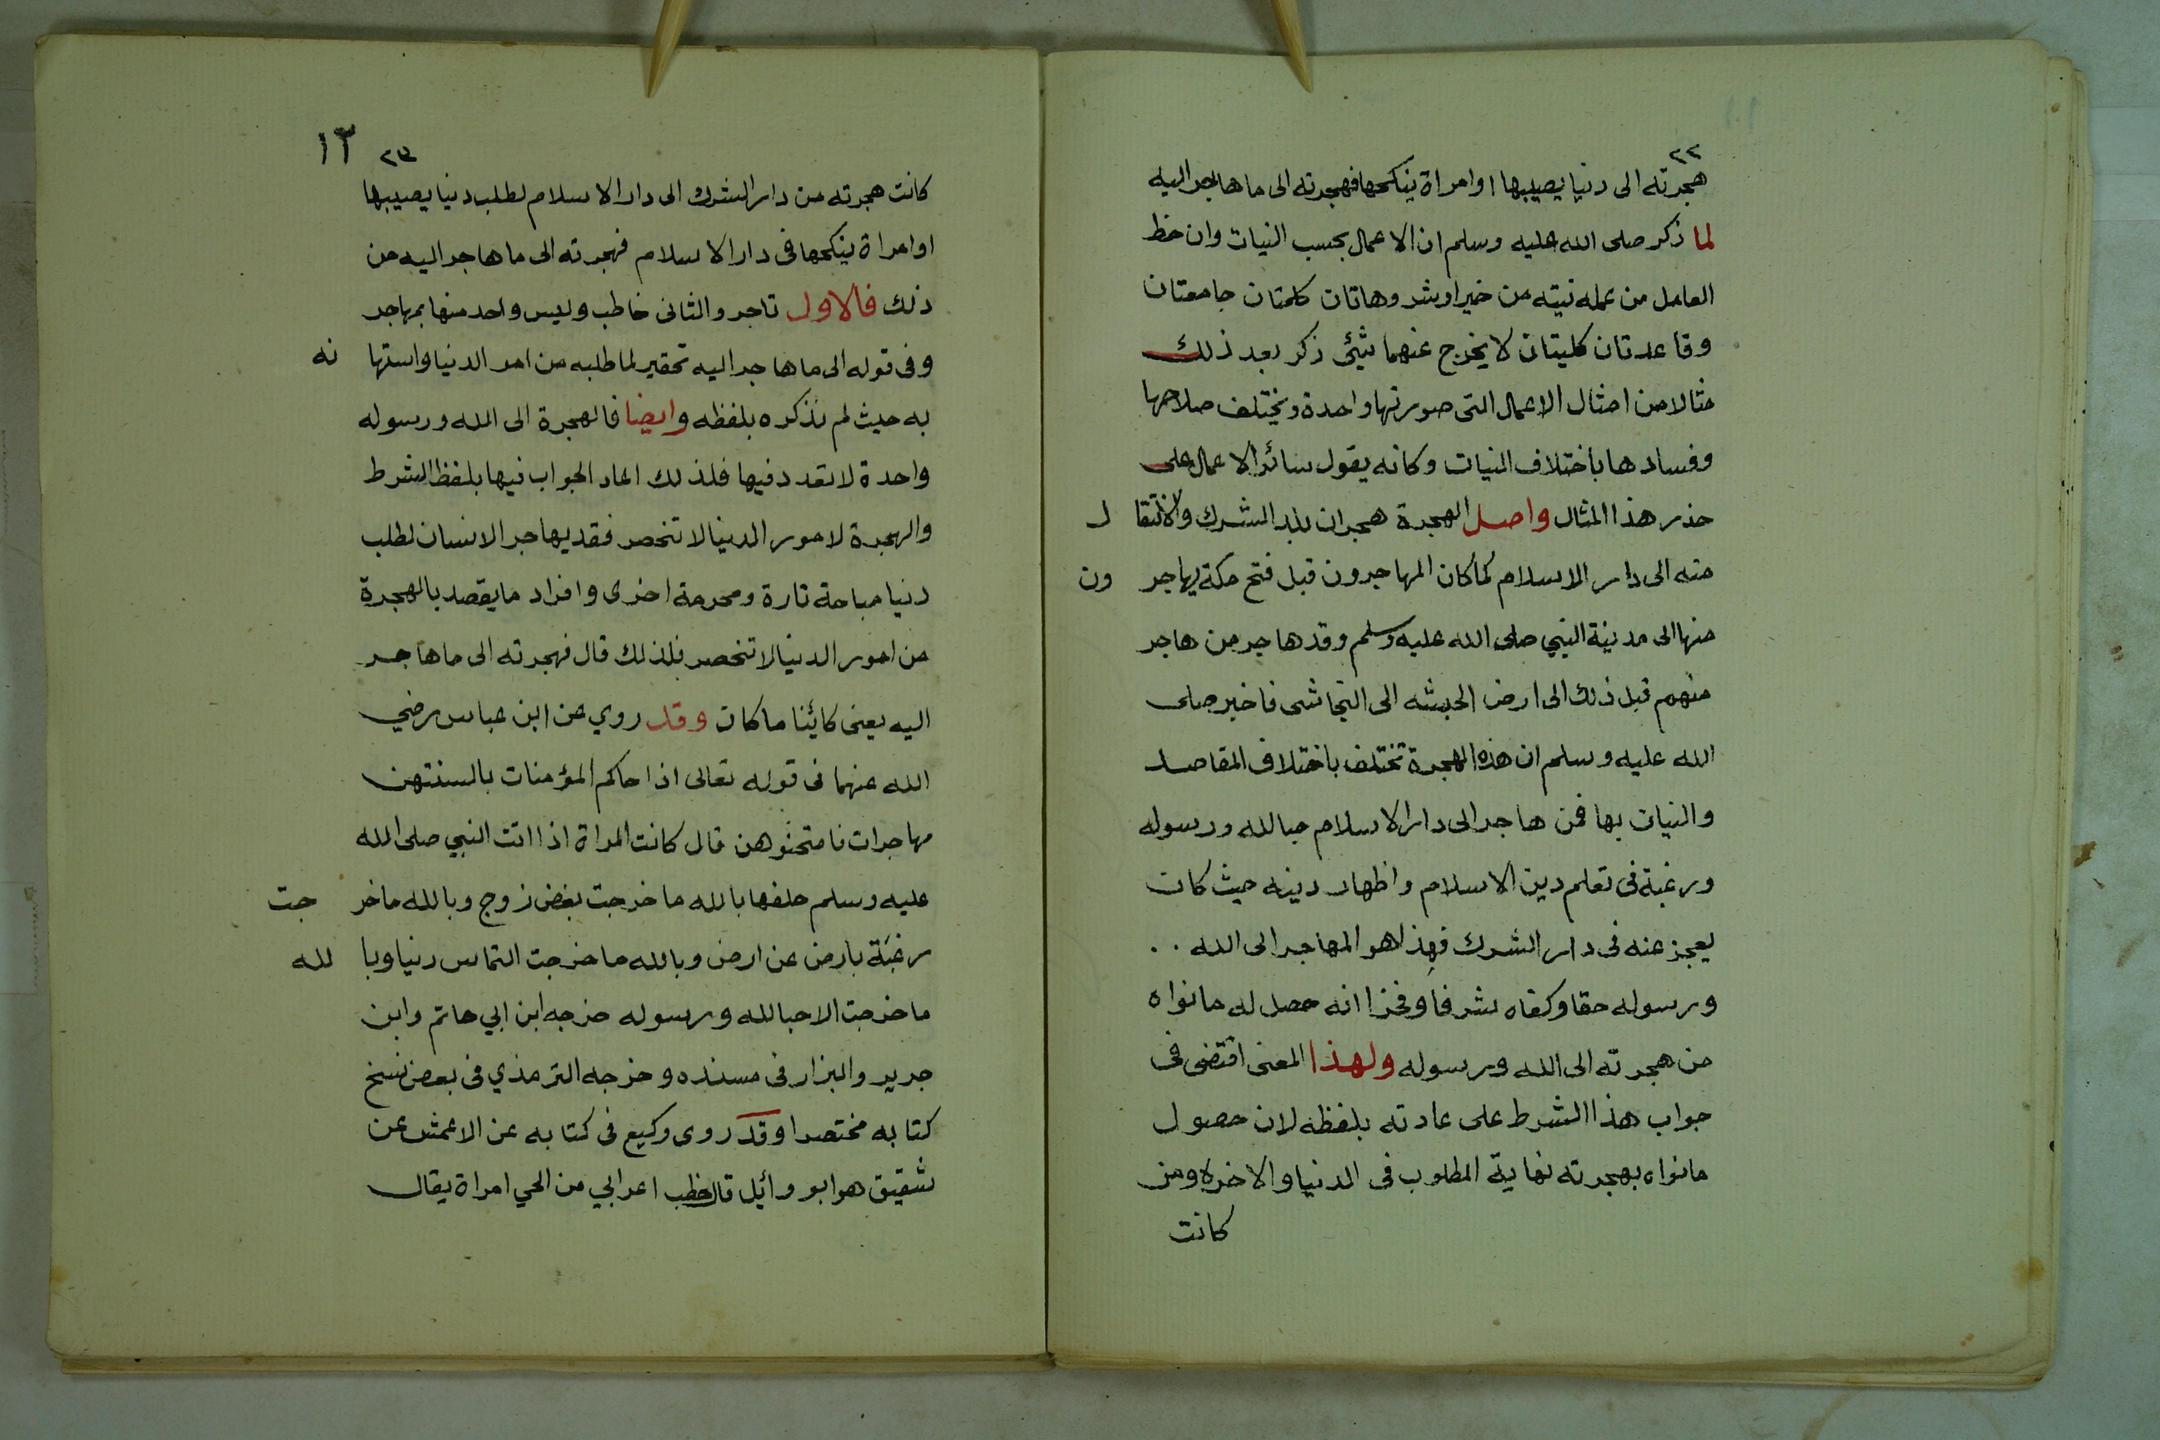 ٢٢
هجرته الى دنيا يصيبها او امراة ينكحها فهجرته الى ما هاجر اليه
لما ذكر صلى الله عليه وسلم ان الاعمال بحسب النيات وان حظ
العامل من عمله نيته من خير او شر وهاتان كلمتان جامعتان
وقاعدتان كليتان لا يخرج عنهما شئ ذكر بعد ذلك
مثالا من امثال الاعمال التى صورتها واحدة ويختلف صلاحها
وفسادها باختلاف النيات وكانه يقول سائر الاعمال على
حذر هذا المثال واصل الهجرة هجران بلد الشرك والانتقا ل
منه الى دار الاسلام كما كان المهاجرون قبل فتح مكة يهاجر ون
منها الى مدينة النبي صلى الله عليه وسلم وقد هاجر من هاجر
منهم قبل ذلك الى ارض الحبشه الى النجاشى فاخبر صلى
الله عليه وسلم ان هذه الهجرة تختلف باختلاف المقاصد
والنيات بها فمن هاجر الى دار الاسلام حبا لله ورسوله
ورغبة فى تعلم دين الاسلام واظهار دينه حيث كان
يعجز عنه فى دار الشرك فهذا هو المهاجر الى الله . .
ورسوله حقا وكفاه شرفا وفخرا انه حصل له ما نواه
من هجرته الى الله ورسوله ولهذا المعنى اقتضى فى
جواب هذا الشرط على عادته بلفظه لان حصول
ما نواه بهجرته نهاية المطلوب فى الدنيا والاخرة ومن
كانت
٢٣ ١٣
كانت هجرته من دار الشرك الى دار الاسلام لطلب دنيا يصيبها
او امراة ينكحها فى دار الاسلام فهجرته الى ما هاجر اليه من
ذلك فالاول تاجر والثانى خاطب وليس واحد منها بمهاجر
وفى قوله الى ما هاجر اليه تحقير لما طلبه من امر الدنيا واستها نه
به حيث لم يذكره بلفظه وايضا فالهجرة الى الله ورسوله
واحدة لا تعدد فيها فلذلك اعاد الجواب فيها بلفظ الشرط
والهجرة لامور الدنيا لا تنحصر فقد يهاجر الانسان لطلب
دنيا مباحة تارة ومحرمة اخرى وافراد ما يقصد بالهجرة
من امور الدنيا لا تنحصر فلذلك قال فهجرته الى ما هاجر
اليه يعنى كائنا ما كان وقد روي عن ابن عباس رضي
الله عنهما فى قوله تعالى اذا جاكم المؤمنات بالسنتهن
مهاجرات فامتحنوهن قال كانت المراة اذا اتت النبي صلى الله
عليه وسلم حلفها بالله ما خرجت بغض زوج وبالله ما خر جت
رغبة بارض عن ارض وبالله ما خرجت التماس دنيا وبا لله
ما خرجت الا حبا لله ورسوله خرجه ابن ابي حاتم وابن
جرير والبزار فى مسنده وخرجه الترمذي فى بعض نسخ
كتابه مختصرا وقد روى وكيع فى كتابه عن الاعمش عن
شقيق هو ابو وائل قال خطب اعرابي من الحي امراة يقال